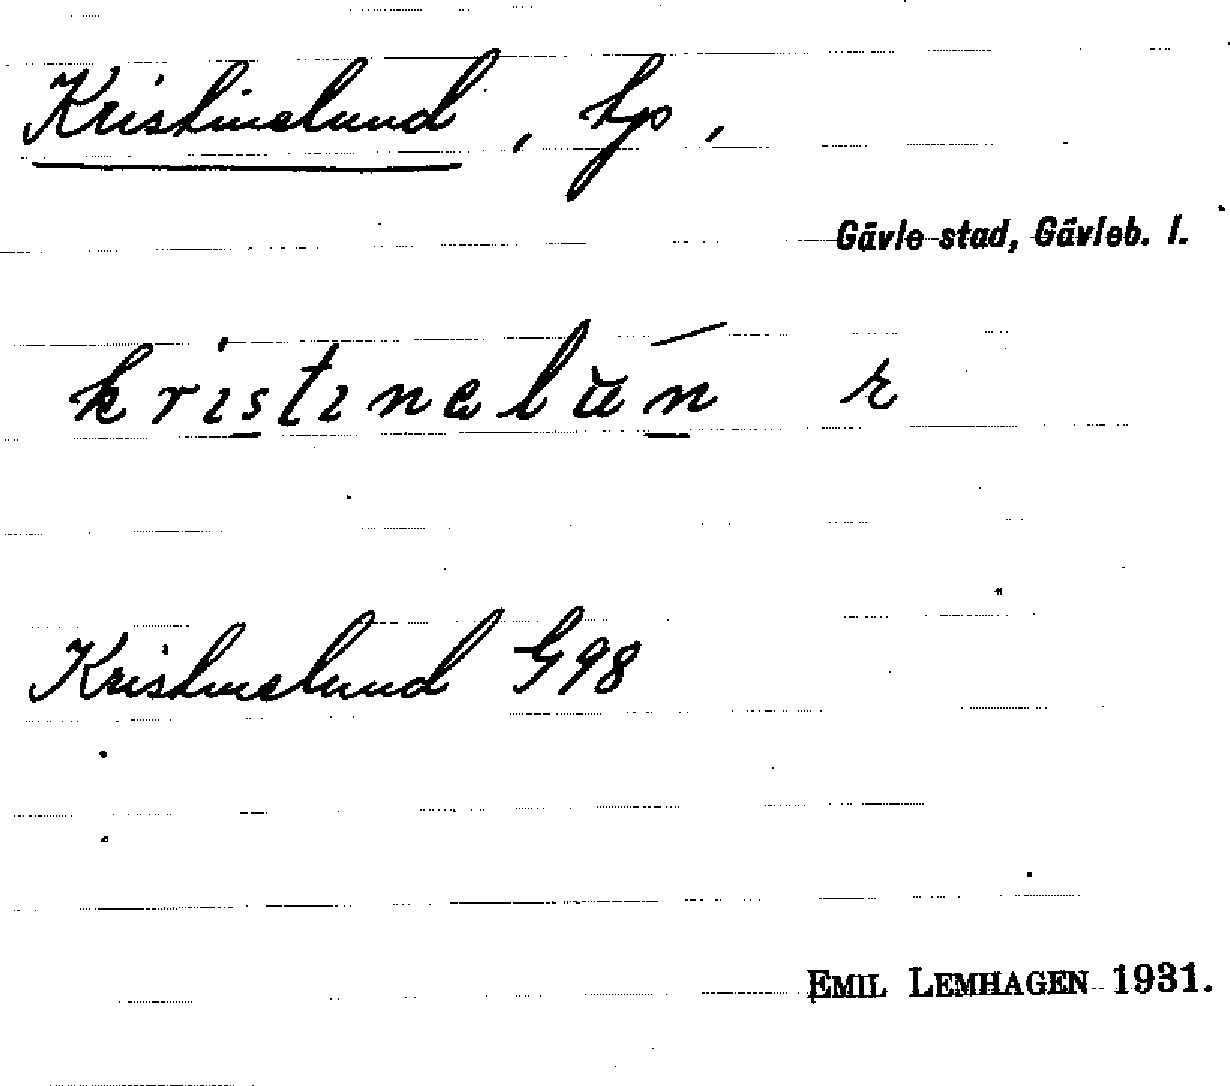 Kristinelund, hp,
Gävle stad, Gävleb. l.
kristinelun r
Kristinelund G98
EMIL LEMHAGEN 1931.